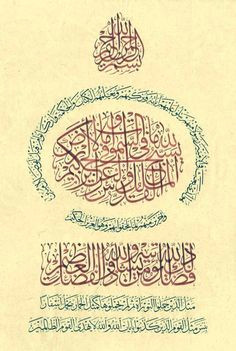 بسم الله الرحمن الرحيم
يسبح لله ما في السموات وما في الأرض الملك القدوس العزيز الحكيم
هو الذي بعث في الأميين رسولا منهم يتلو عليهم آياته ويزكيهم ويعلمهم الكتاب والحكمة وإن كانوا من قبل لفي ضلال مبين
وآخرين منهم لما يلحقوا بهم وهو العزيز الحكيم
ذلك فضل الله يؤتيه من يشاء والله ذو الفضل العظيم
مثل الذين حملوا التورية ثم لم يحملوها كمثل الحمار يحمل أسفارا
بئس مثل القوم الذين كذبوا بآيات الله والله لا يهدي القوم الظالمين